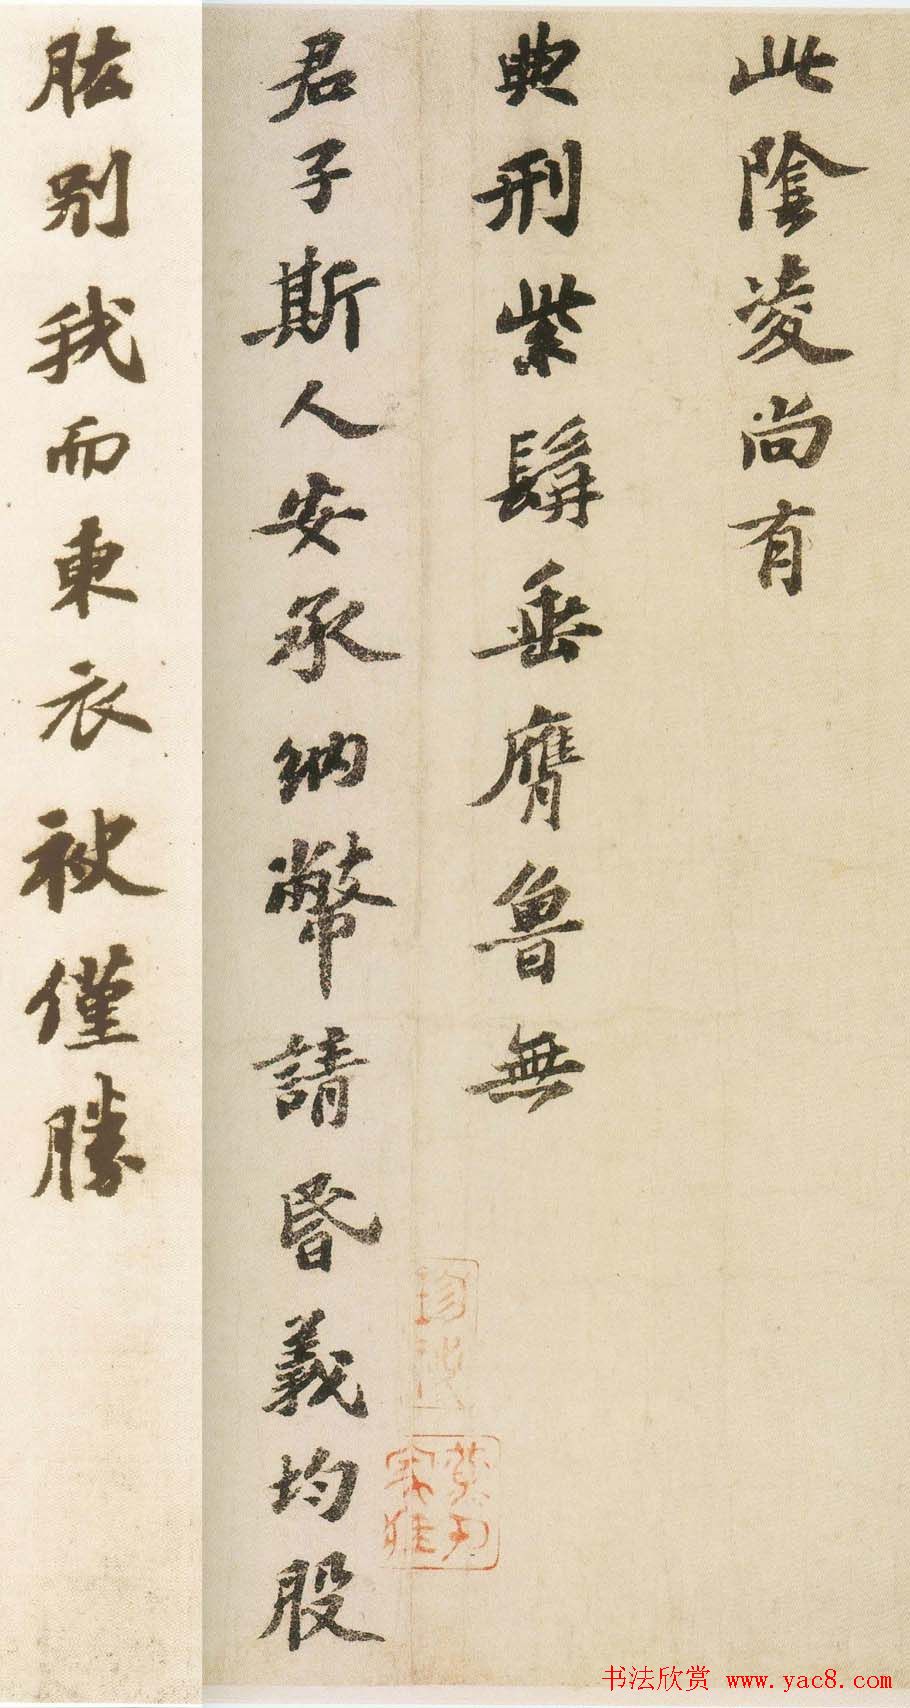 此陰凌尚有
典刑紫髯垂膺魯無
君子斯人安承納幣請昏義均股
肱别我而東衣袂僅勝
书法欣赏 www.yac8.com